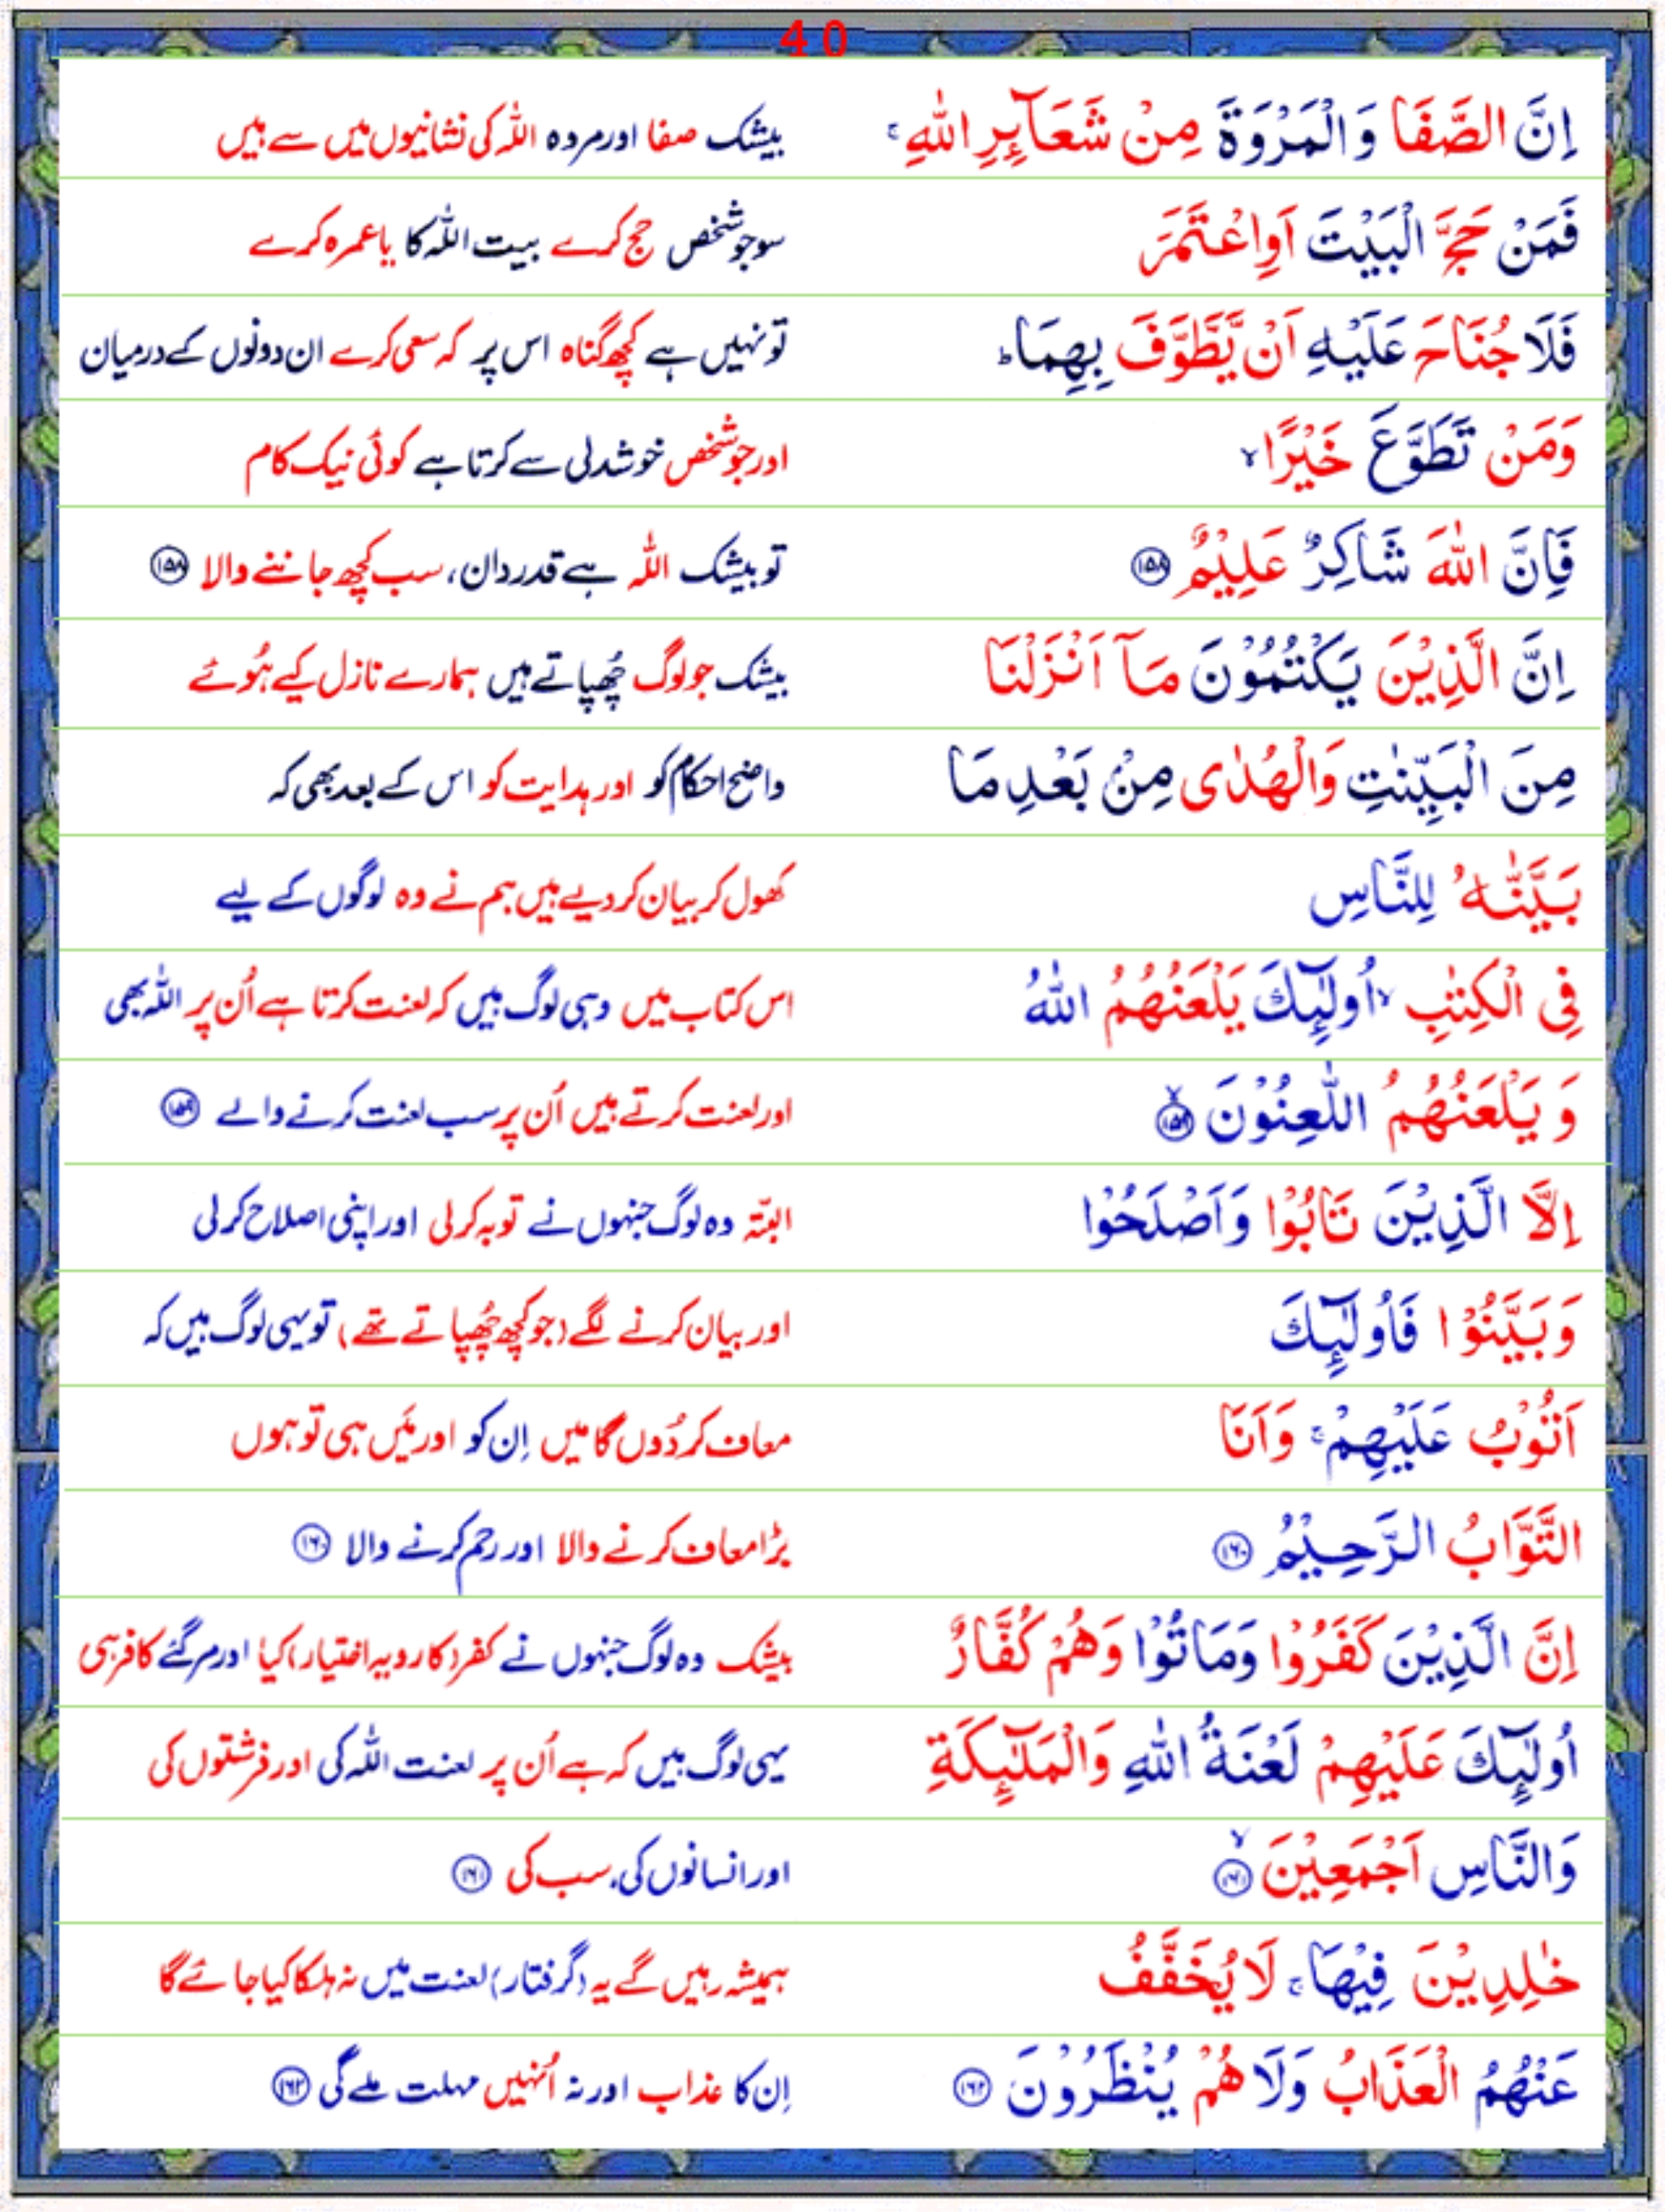 40
اِنَّ الصَّفَا وَالْمَرْوَةَ مِنْ شَعَآئِرِ اللّٰهِ ۚ بیشک صفا اور مروہ اللہ کی نشانیوں میں سے ہیں
فَمَنْ حَجَّ الْبَيْتَ اَوِاعْتَمَرَ سو جو شخص حج کرے بیت اللہ کا یا عمرہ کرے
فَلَا جُنَاحَ عَلَيْهِ اَنْ يَّطَّوَّفَ بِهِمَا ؕ تو نہیں ہے کچھ گناہ اس پر کہ سعی کرے ان دونوں کے درمیان
وَمَنْ تَطَوَّعَ خَيْرًا ۙ اور جو شخص خوشدلی سے کرتا ہے کوئی نیک کام
فَاِنَّ اللّٰهَ شَاكِرٌ عَلِيْمٌ ﴿۱۵۸﴾ تو بیشک اللہ ہے قدردان، سب کچھ جاننے والا ﴿۱۵۸﴾
اِنَّ الَّذِيْنَ يَكْتُمُوْنَ مَآ اَنْزَلْنَا بیشک جو لوگ چُھپاتے ہیں ہمارے نازل کیے ہُوئے
مِنَ الْبَيِّنٰتِ وَالْهُدٰى مِنْۢ بَعْدِ مَا واضح احکام کو اور ہدایت کو اس کے بعد بھی کہ
بَيَّنّٰهُ لِلنَّاسِ کھول کر بیان کر دیے ہیں ہم نے وہ لوگوں کے لیے
فِى الْكِتٰبِ ۙ اُولٰٓئِكَ يَلْعَنُهُمُ اللّٰهُ اس کتاب میں وہی لوگ ہیں کہ لعنت کرتا ہے اُن پر اللہ بھی
وَ يَلْعَنُهُمُ اللّٰعِنُوْنَ ۙ﴿۱۵۹﴾ اور لعنت کرتے ہیں اُن پر سب لعنت کرنے والے ﴿۱۵۹﴾
اِلَّا الَّذِيْنَ تَابُوْا وَاَصْلَحُوْا البتّہ وہ لوگ جنہوں نے توبہ کرلی اور اپنی اصلاح کرلی
وَبَيَّنُوْا فَاُولٰٓئِكَ اور بیان کرنے لگے (جو کچھ چُھپاتے تھے) تو یہی لوگ ہیں کہ
اَتُوْبُ عَلَيْهِمْ ۚ وَاَنَا معاف کر دُوں گا میں اِن کو اور مَیں ہی تو ہوں
التَّوَّابُ الرَّحِيْمُ ﴿۱۶۰﴾ بڑا معاف کرنے والا اور رحم کرنے والا ﴿۱۶۰﴾
اِنَّ الَّذِيْنَ كَفَرُوْا وَمَاتُوْا وَهُمْ كُفَّارٌ بیشک وہ لوگ جنہوں نے کفر (کا رویہ اختیار) کیا اور مر گئے کافر ہی
اُولٰٓئِكَ عَلَيْهِمْ لَعْنَةُ اللّٰهِ وَالْمَلٰٓئِكَةِ یہی لوگ ہیں کہ ہے اُن پر لعنت اللہ کی اور فرشتوں کی
وَالنَّاسِ اَجْمَعِيْنَ ۙ﴿۱۶۱﴾ اور انسانوں کی، سب کی ﴿۱۶۱﴾
خٰلِدِيْنَ فِيْهَا ۚ لَا يُخَفَّفُ ہمیشہ رہیں گے یہ (گرفتار) لعنت میں نہ ہلکا کیا جائے گا
عَنْهُمُ الْعَذَابُ وَلَا هُمْ يُنْظَرُوْنَ ﴿۱۶۲﴾ اِن کا عذاب اور نہ اُنہیں مہلت ملے گی ﴿۱۶۲﴾